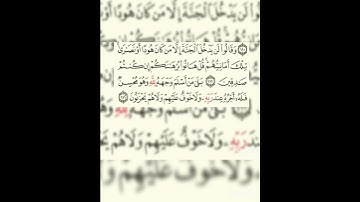 وَقَالُوا۟ لَن يَدْخُلَ ٱلْجَنَّةَ إِلَّا مَن كَانَ هُودًا أَوْ نَصَٰرَىٰ
تِلْكَ أَمَانِيُّهُمْ قُلْ هَاتُوا۟ بُرْهَٰنَكُمْ إِن كُنتُمْ
صَٰدِقِينَ ١١١ بَلَىٰ مَنْ أَسْلَمَ وَجْهَهُۥ لِلَّهِ وَهُوَ مُحْسِنٌ
فَلَهُۥٓ أَجْرُهُۥ عِندَ رَبِّهِۦ وَلَا خَوْفٌ عَلَيْهِمْ وَلَا هُمْ يَحْزَنُونَ ١١٢